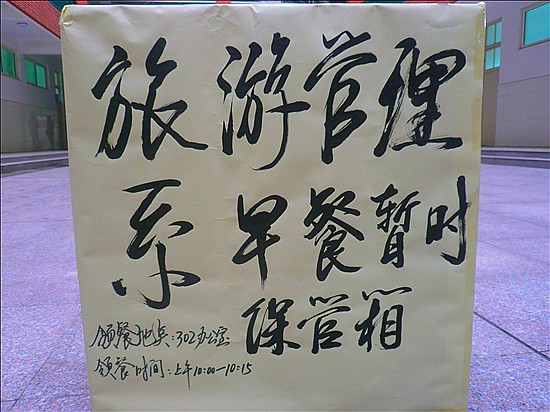 旅游管理
系 早餐暂时
保管箱
领餐地点:302办公室
领餐时间:上午10:00-10:15